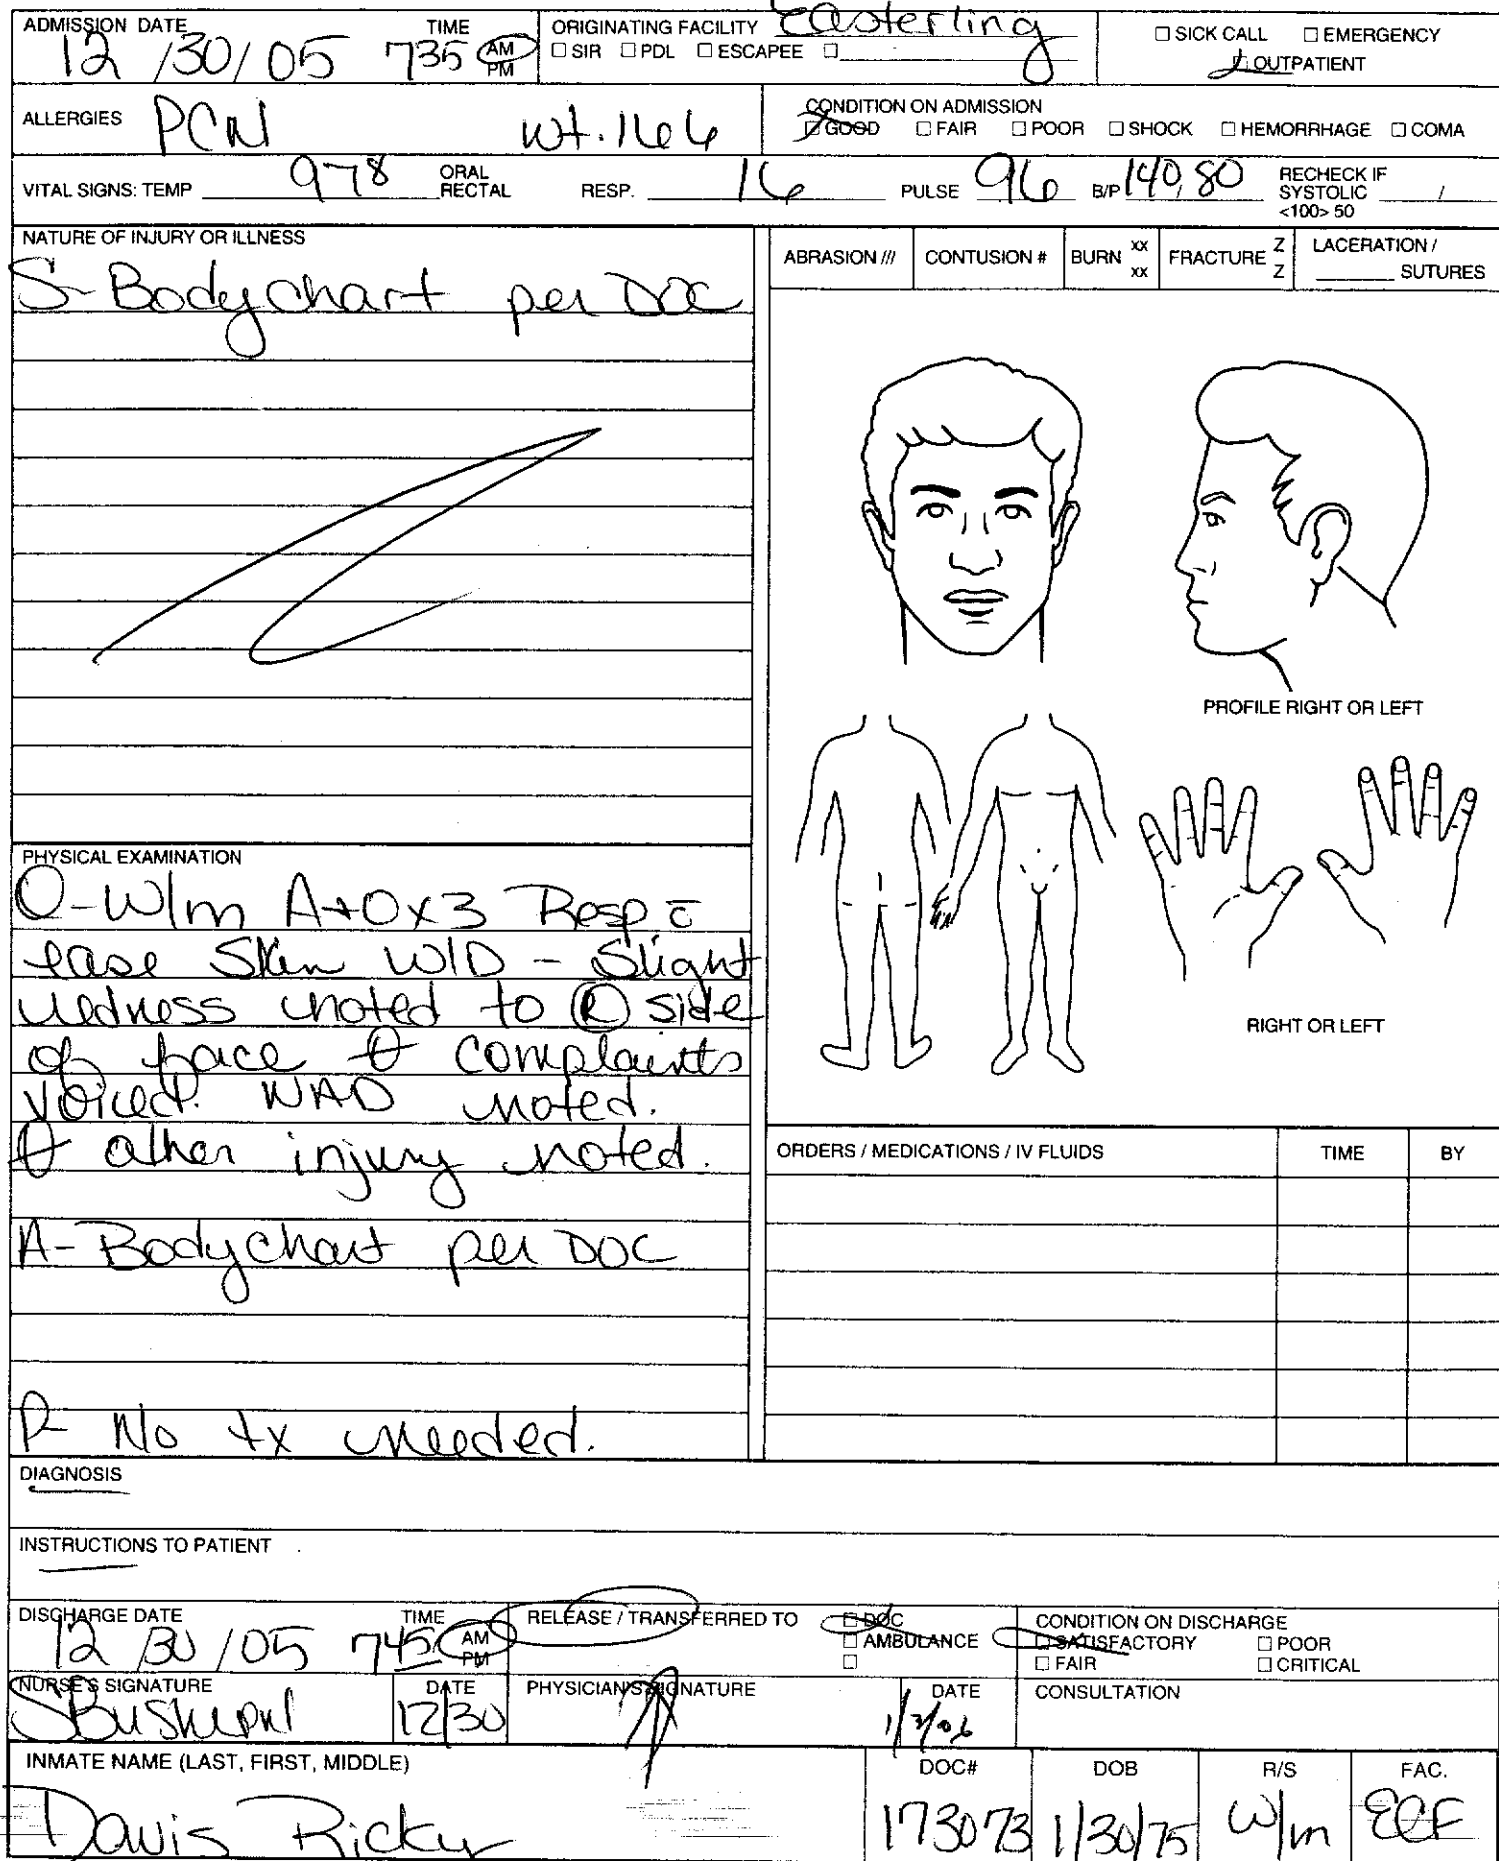 ADMISSION DATE TIME ORIGINATING FACILITY Easterling
12 /30/ 05 735 AM PM
□ SIR □ PDL □ ESCAPEE □
□ SICK CALL □ EMERGENCY
□ OUTPATIENT
ALLERGIES PCN wt. 166
CONDITION ON ADMISSION
□ GOOD □ FAIR □ POOR □ SHOCK □ HEMORRHAGE □ COMA
VITAL SIGNS: TEMP 978 ORAL RECTAL RESP. 16 PULSE 96 B/P 140, 80 RECHECK IF SYSTOLIC / <100> 50
NATURE OF INJURY OR ILLNESS
S- Body chart per DOC
ABRASION /// CONTUSION # BURN xx xx FRACTURE Z Z LACERATION / SUTURES
PROFILE RIGHT OR LEFT
RIGHT OR LEFT
PHYSICAL EXAMINATION
O- W/m A+Ox3 Resp c̄
ease Skin W/D - Slight
redness noted to Ⓡ side
of face θ complaints
voiced. NAD noted.
θ other injury noted.
A- Body chart per DOC
P- No tx needed.
ORDERS / MEDICATIONS / IV FLUIDS TIME BY
DIAGNOSIS
INSTRUCTIONS TO PATIENT
DISCHARGE DATE TIME
12 /30 /05 745 AM PM
RELEASE / TRANSFERRED TO □ DOC
□ AMBULANCE
□
CONDITION ON DISCHARGE
□ SATISFACTORY □ POOR
□ FAIR □ CRITICAL
NURSE'S SIGNATURE DATE PHYSICIAN'S SIGNATURE DATE CONSULTATION
12/30 1/3/06
INMATE NAME (LAST, FIRST, MIDDLE) DOC# DOB R/S FAC.
Davis Ricky 173073 1/30/75 W/m ECF